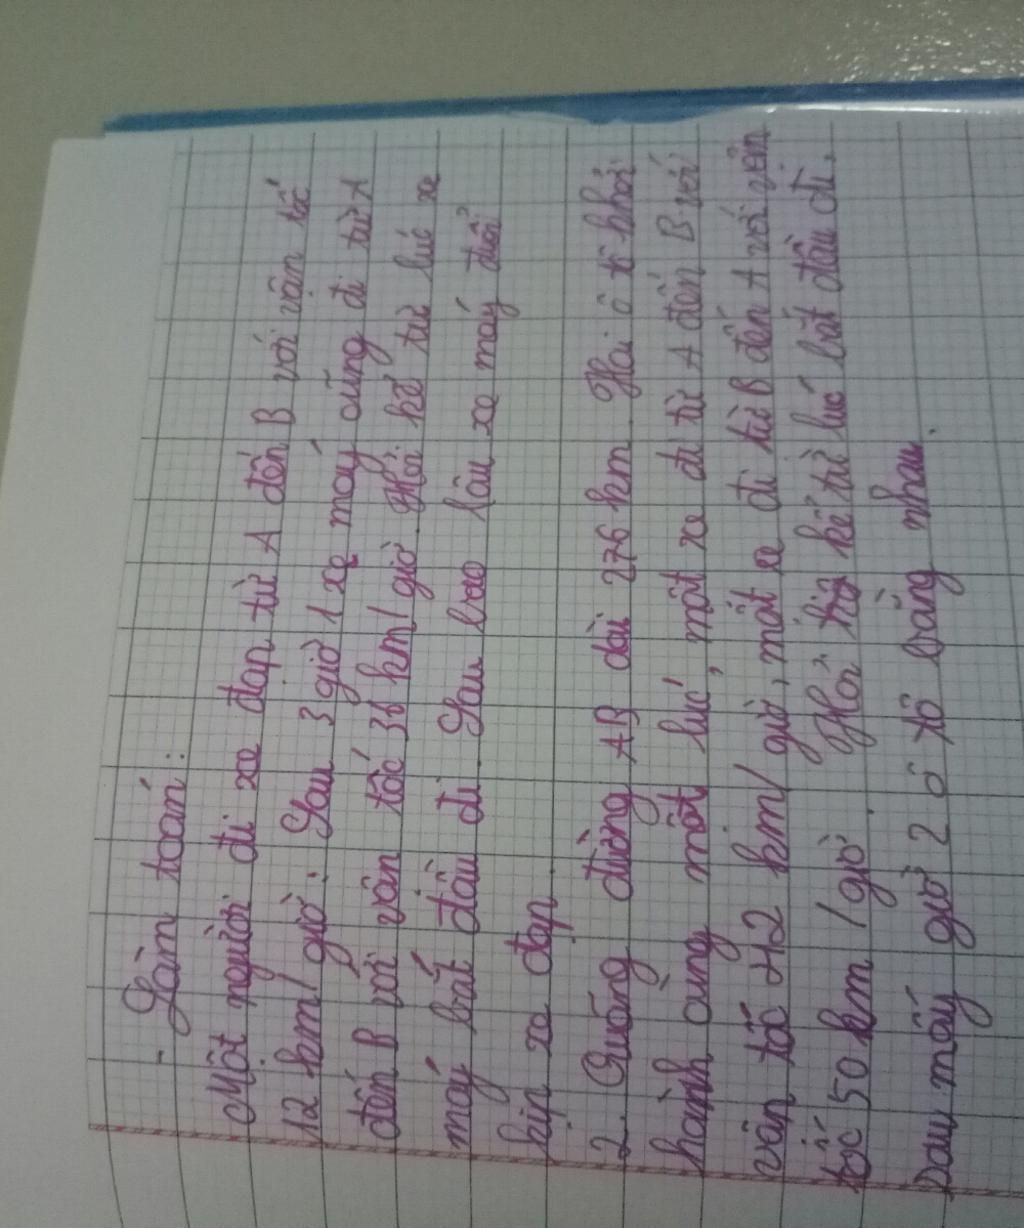 - Làm toán :
Một người đi xe đạp từ A đến B với vận tốc
12 km/ giờ. Sau 3 giờ 1 xe máy cũng đi từ A
đến B với vân tốc 36 km/ giờ. Hỏi kể từ lúc xe
máy bắt đầu đi. Sau bao lâu xe máy đuổi
kịp xe đạp.
2. Quãng đường AB dài 276 km. Hai ô tô khởi
hành cùng một lúc, một xe đi từ A đến B với
vân tốc 42 km/ giờ, một xe đi từ B đến A với vận
tốc 50 km /giờ. Hỏi kể từ lúc bắt đầu đi.
Sau mấy giờ 2 ô tô bằng nhau.